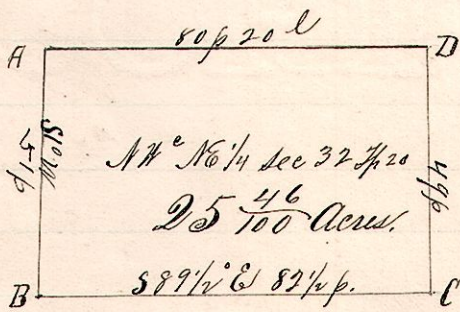 80p 20 l
A D
51p
S1°W
NW c NE 1/4 Sec 32 Tp 20
49p
25 46/100 Acres.
S 89 1/2° E 82 1/2 p.
B C